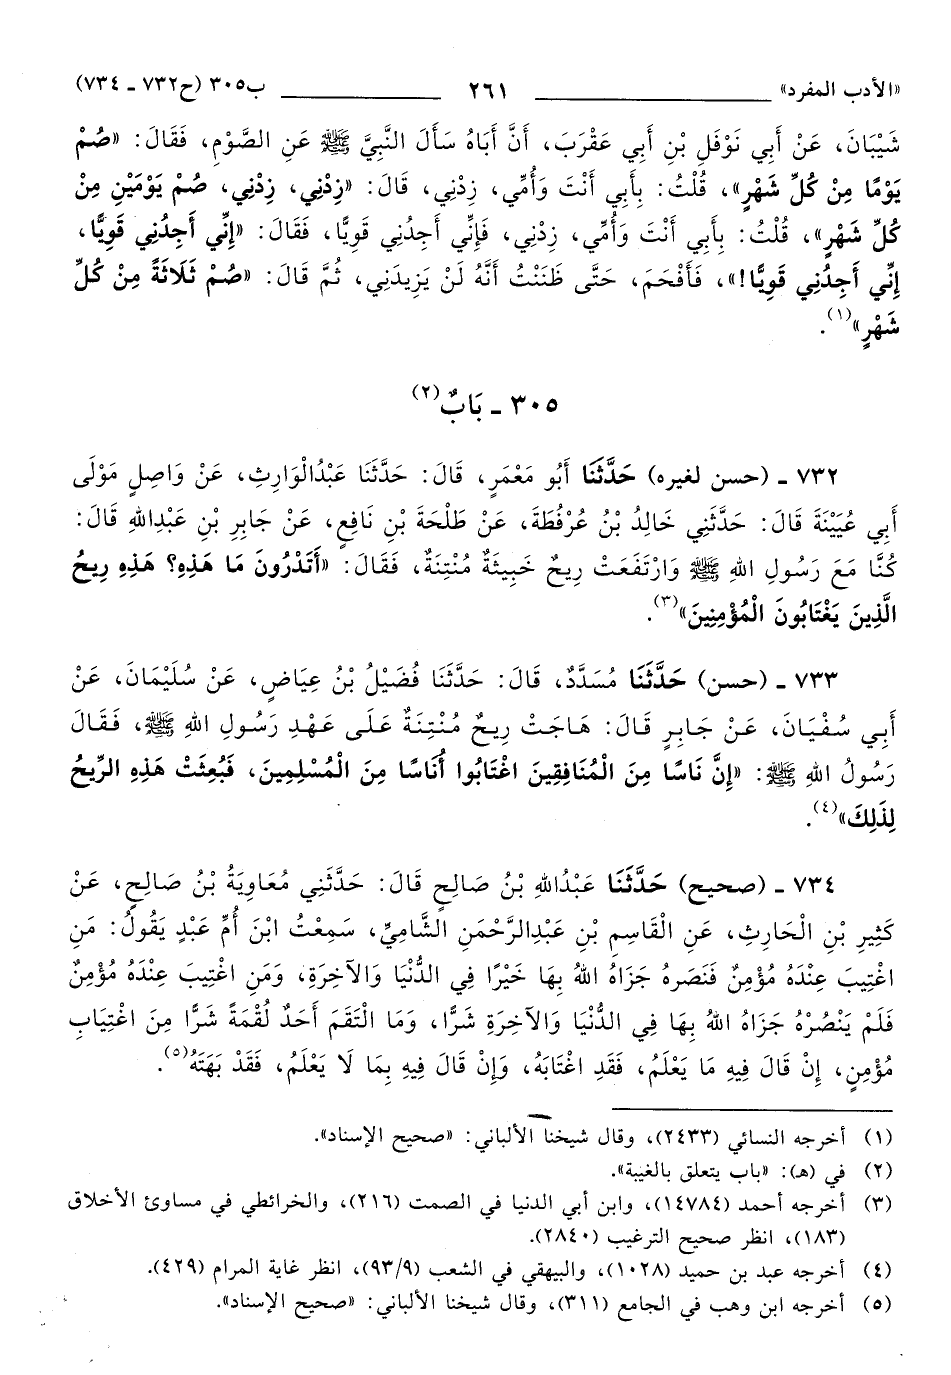 «الأدب المفرد» ٢٦١ ب٣٠٥ (ح٧٣٢ ـ ٧٣٤)
شَيْبَانَ، عَنْ أَبِي نَوْفَلِ بْنِ أَبِي عَقْرَبَ، أَنَّ أَبَاهُ سَأَلَ النَّبِيَّ ﷺ عَنِ الصَّوْمِ، فَقَالَ: «صُمْ
يَوْمًا مِنْ كُلِّ شَهْرٍ»، قُلْتُ: بِأَبِي أَنْتَ وَأُمِّي، زِدْنِي، قَالَ: «زِدْنِي، زِدْنِي، صُمْ يَوْمَيْنِ مِنْ
كُلِّ شَهْرٍ»، قُلْتُ: بِأَبِي أَنْتَ وَأُمِّي، زِدْنِي، فَإِنِّي أَجِدُنِي قَوِيًّا، فَقَالَ: «إِنِّي أَجِدُنِي قَوِيًّا،
إِنِّي أَجِدُنِي قَوِيًّا!»، فَأَفْحَمَ، حَتَّى ظَنَنْتُ أَنَّهُ لَنْ يَزِيدَنِي، ثُمَّ قَالَ: «صُمْ ثَلَاثَةً مِنْ كُلِّ
شَهْرٍ»(١).
٣٠٥ ـ بَابٌ(٢)
٧٣٢ ـ (حسن لغيره) حَدَّثَنَا أَبُو مَعْمَرٍ، قَالَ: حَدَّثَنَا عَبْدُالْوَارِثِ، عَنْ وَاصِلٍ مَوْلَى
أَبِي عُيَيْنَةَ قَالَ: حَدَّثَنِي خَالِدُ بْنُ عُرْفُطَةَ، عَنْ طَلْحَةَ بْنِ نَافِعٍ، عَنْ جَابِرِ بْنِ عَبْدِاللهِ قَالَ:
كُنَّا مَعَ رَسُولِ اللهِ ﷺ وَارْتَفَعَتْ رِيحٌ خَبِيثَةٌ مُنْتِنَةٌ، فَقَالَ: «أَتَدْرُونَ مَا هَذِهِ؟ هَذِهِ رِيحُ
الَّذِينَ يَغْتَابُونَ الْمُؤْمِنِينَ»(٣).
٧٣٣ ـ (حسن) حَدَّثَنَا مُسَدَّدٌ، قَالَ: حَدَّثَنَا فُضَيْلُ بْنُ عِيَاضٍ، عَنْ سُلَيْمَانَ، عَنْ
أَبِي سُفْيَانَ، عَنْ جَابِرٍ قَالَ: هَاجَتْ رِيحٌ مُنْتِنَةٌ عَلَى عَهْدِ رَسُولِ اللهِ ﷺ، فَقَالَ
رَسُولُ اللهِ ﷺ: «إِنَّ نَاسًا مِنَ الْمُنَافِقِينَ اغْتَابُوا أُنَاسًا مِنَ الْمُسْلِمِينَ، فَبُعِثَتْ هَذِهِ الرِّيحُ
لِذَلِكَ»(٤).
٧٣٤ ـ (صحيح) حَدَّثَنَا عَبْدُاللهِ بْنُ صَالِحٍ قَالَ: حَدَّثَنِي مُعَاوِيَةُ بْنُ صَالِحٍ، عَنْ
كَثِيرِ بْنِ الْحَارِثِ، عَنِ الْقَاسِمِ بْنِ عَبْدِالرَّحْمَنِ الشَّامِيِّ، سَمِعْتُ ابْنَ أُمِّ عَبْدٍ يَقُولُ: مَنِ
اغْتِيبَ عِنْدَهُ مُؤْمِنٌ فَنَصَرهُ جَزَاهُ اللهُ بِهَا خَيْرًا فِي الدُّنْيَا وَالْآخِرَةِ، وَمَنِ اغْتِيبَ عِنْدَهُ مُؤْمِنٌ
فَلَمْ يَنْصُرْهُ جَزَاهُ اللهُ بِهَا فِي الدُّنْيَا وَالْآخِرَةِ شَرًّا، وَمَا الْتَقَمَ أَحَدٌ لُقْمَةً شَرًّا مِنَ اغْتِيَابِ
مُؤْمِنٍ، إِنْ قَالَ فِيهِ مَا يَعْلَمُ، فَقَدِ اغْتَابَهُ، وَإِنْ قَالَ فِيهِ بِمَا لَا يَعْلَمُ، فَقَدْ بَهَتَهُ(٥).
(١) أخرجه النسائي (٢٤٣٣)، وقال شيخنا الألباني: «صحيح الإسناد».
(٢) في (هـ): «باب يتعلق بالغيبة».
(٣) أخرجه أحمد (١٤٧٨٤)، وابن أبي الدنيا في الصمت (٢١٦)، والخرائطي في مساوئ الأخلاق
(١٨٣)، انظر صحيح الترغيب (٢٨٤٠).
(٤) أخرجه عبد بن حميد (١٠٢٨)، والبيهقي في الشعب (٩٣/٩)، انظر غاية المرام (٤٢٩).
(٥) أخرجه ابن وهب في الجامع (٣١١)، وقال شيخنا الألباني: «صحيح الإسناد».